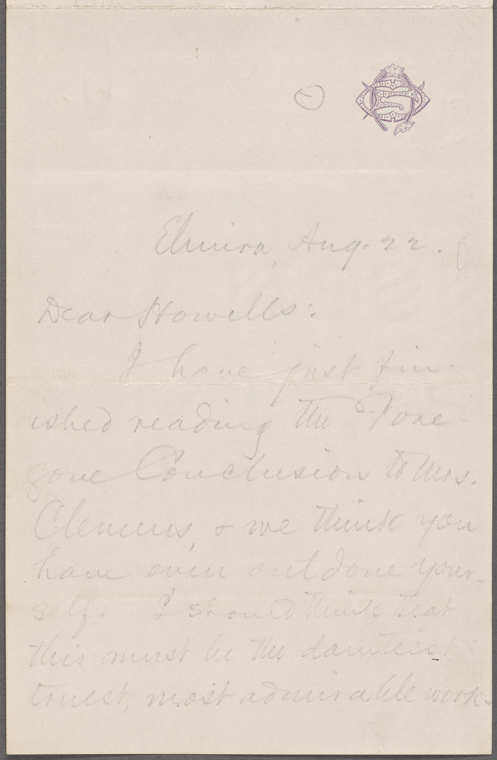 Elmira, Aug. 22.
Dear Howells:
I have just fin-
ished reading the Fore-
gone Conclusion to Mrs.
Clemens, & we think you
have even outdone your-
self. I should think that
this must be the daintiest,
truest, most admirable work-